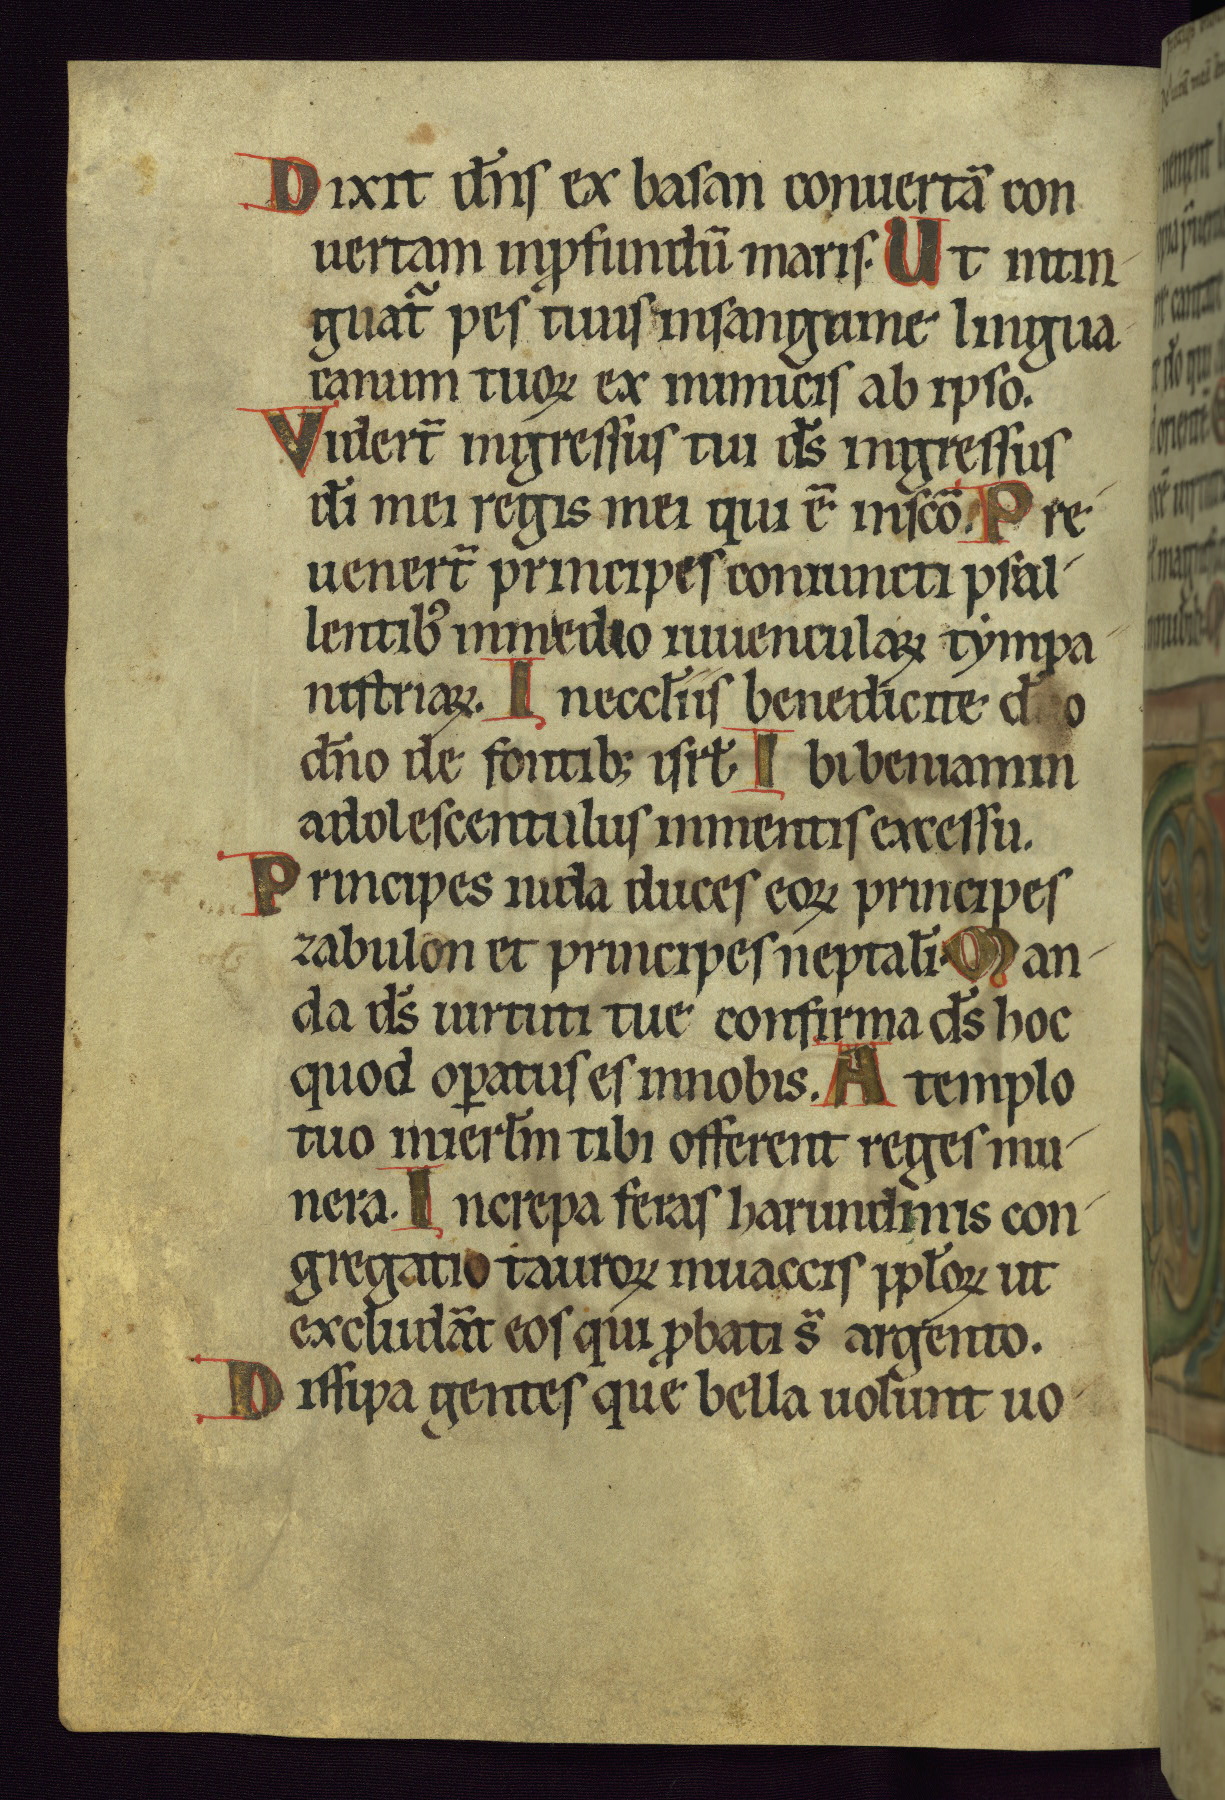 Dixit dn̄s ex basan conuertā con
uertam inꝓfundū maris. Ut intin
guat᷑ pes tuus insanguine lingua
canum tuoꝝ ex inimicis ab ipso.
Videꝛt̄ ingressus tui ds̄ ingressus
dī mei regis mei qui ē insc̄o. Pre
uenert̄ principes coniuncti psal
lentibꝰ inmedio iuuenculaꝝ tẏmpa
nistriaꝝ. In eccl̄iis benedicite d o
dn̄o de fontib; isrl̄. Ibi beniamin
adolescentulus inmentis excessu.
Principes iuda duces eoꝝ principes
zabulon et principes neptalī. Man
da ds̄ uirtuti tue confirma ds̄ hoc
quod oꝑatus es innobis. A templo
tuo inierl̄m tibi offerent reges mu
nera. Increpa feras harundinis con
gregatio tauroꝝ inuaccis ppl̄oꝝ ut
excludāt eos qui ꝓbati s̄ argento.
Dissipa gentes que bella uolunt uo